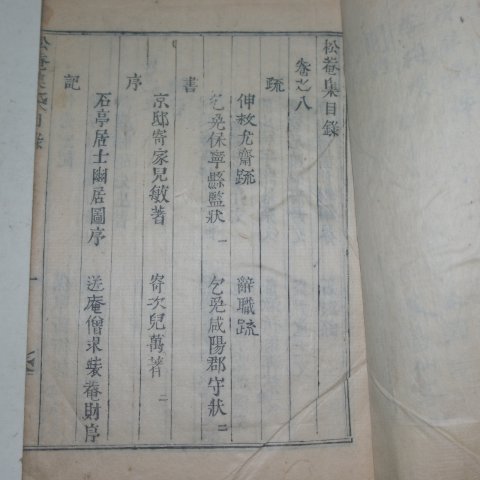 松菴集目錄
卷之八
疏
伸救尤齋疏 辭職疏
乞免保寧縣監狀 一 乞免咸陽郡守狀 二
書
京邸寄家兒敏著 寄次兒萬著 二
序
石亭居士幽居圖序 送庵僧求裝菴財序
記
松菴集 目錄